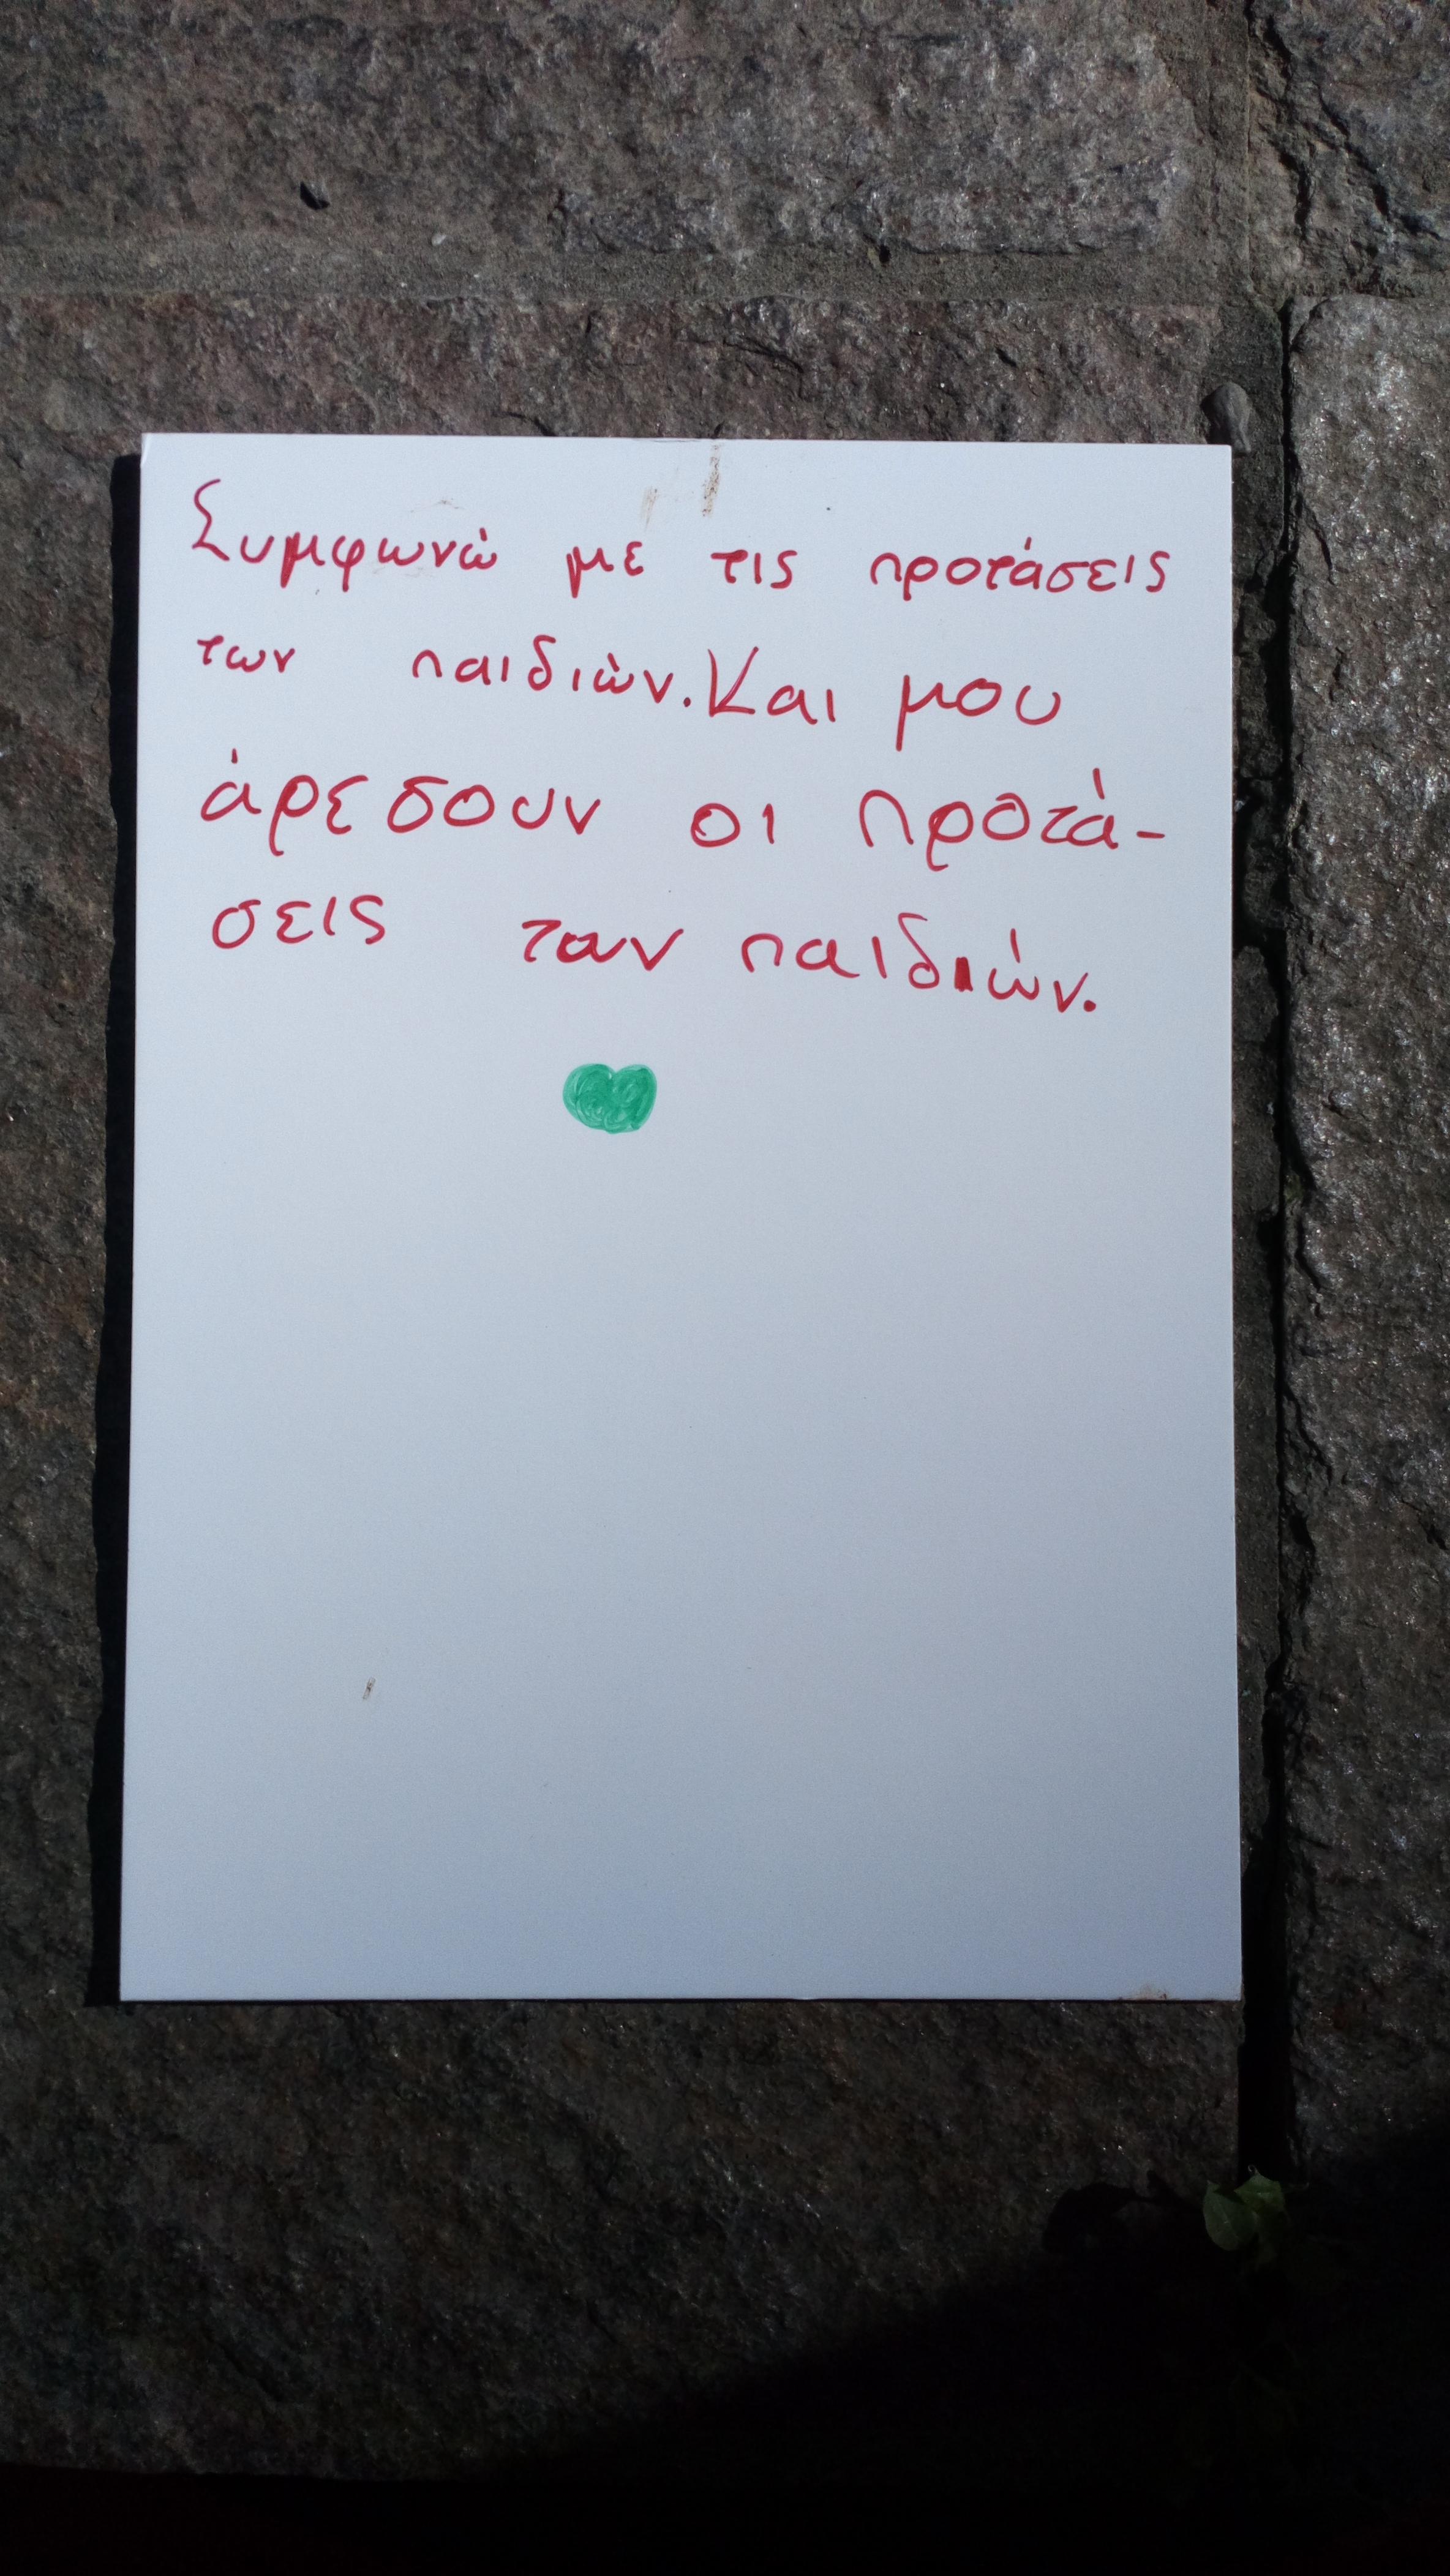 Συμφωνώ με τις προτάσεις
των παιδιών. Και μου
άρεσουν οι προτά-
σεις των παιδιών.